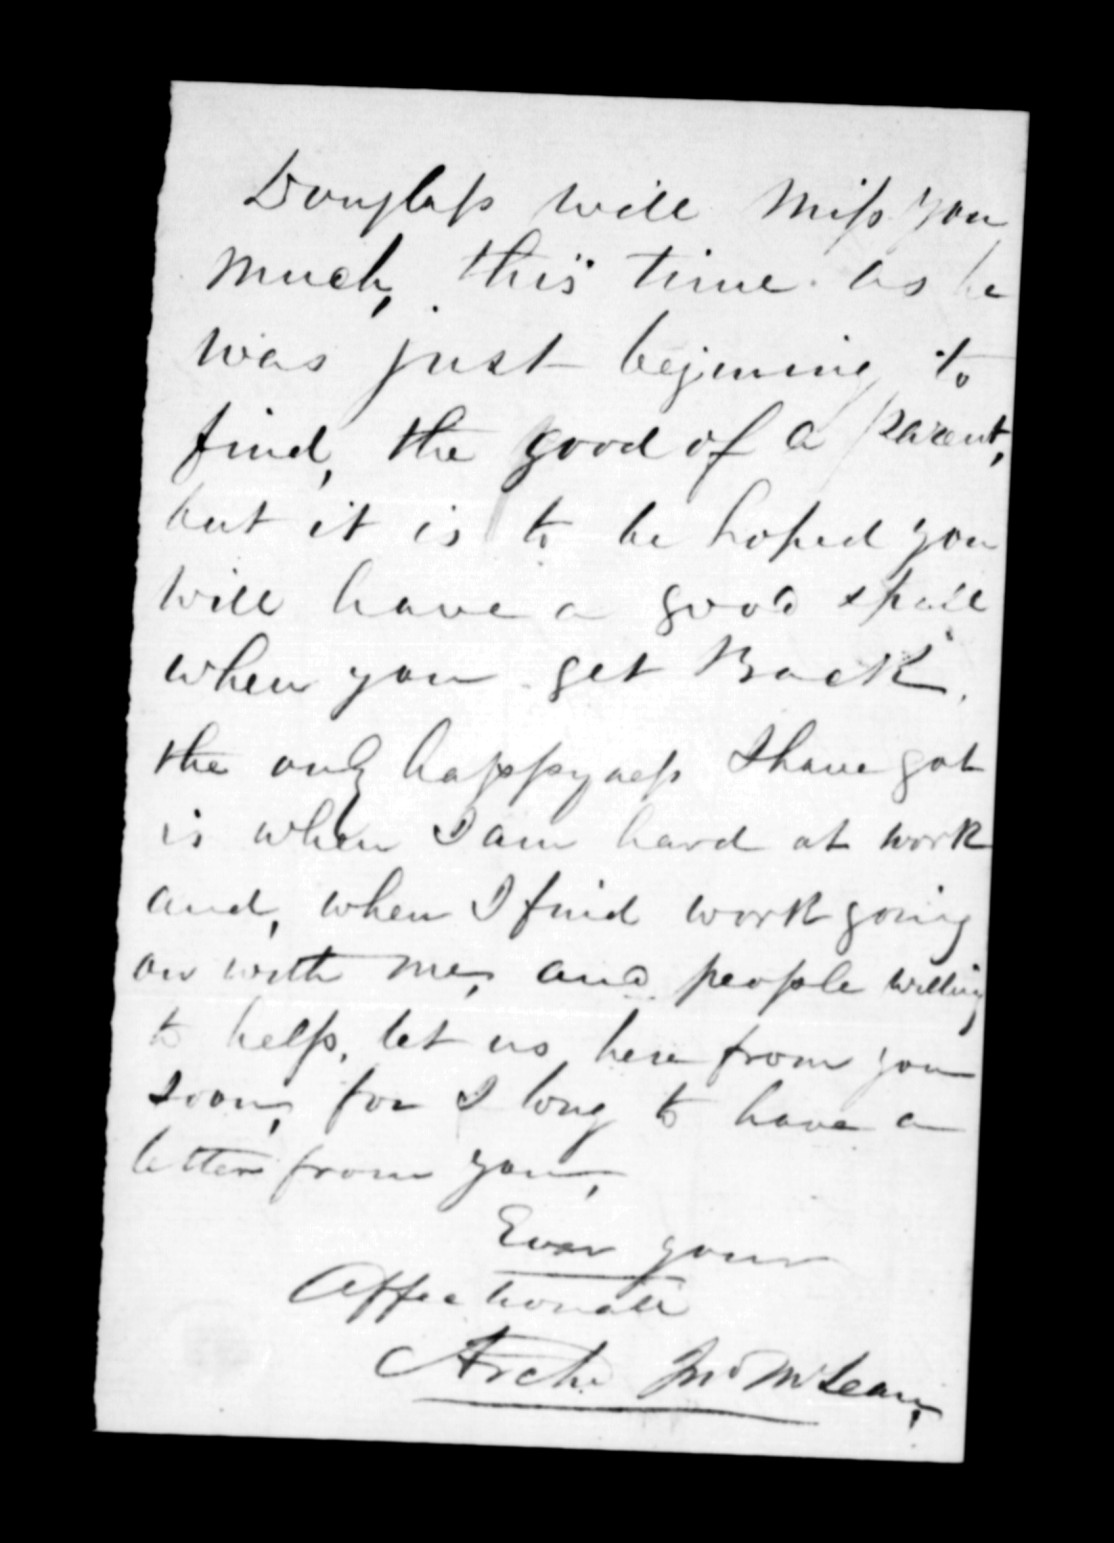 Douglass will miss you
much, this time as he
was just begining to
find, the good of a parent,
but it is to be hoped you
will have a good spale
when you get Back.
the only happyness I have got
is when I am hard at work
and, when I find work going
on with me, and people willing
to help, let us here from you
soon, for I long to have a
letter from you,
Ever your
Affectionate
Archd Jno McLean,